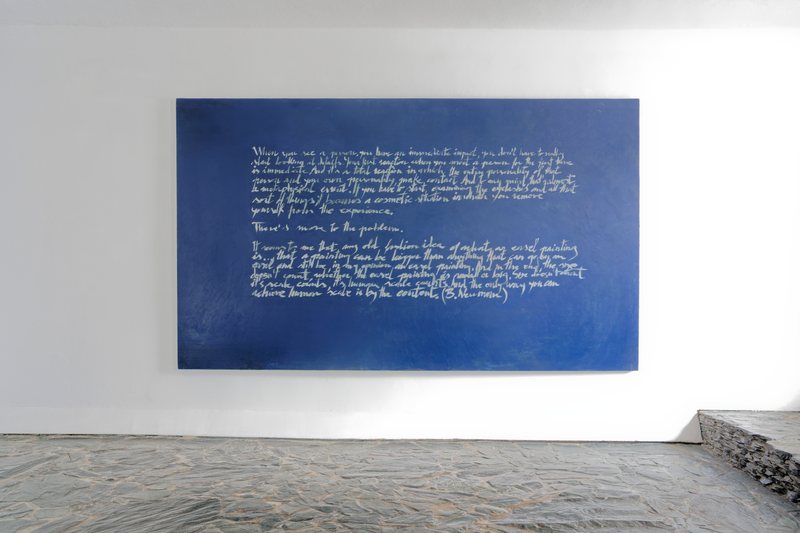 When you see a person, you have an immediate impact, you don't have to really
start looking at details. Your first reaction when you meet a person for the first time
is immediate. And it's a total reaction in which the entire personality of that
person and your own personality make contact. And to my mind that's almost
a metaphysical event. If you have to start examining the eyelashes and all that
sort of things it becomes a cosmetic situation in which you remove
yourself from the experience.
There's more to the problem.
It seems to me that any old fashion idea of what an easel painting
is... that a painting can be bigger than anything that can go by an
easel and still be in my opinion an easel painting. And in the end, the size
doesn't count, whether the easel painting is small or big, size doesn't count
it's scale counts, it's human scale counts, and the only way you can
achieve human scale is by the content. (B. Newman)